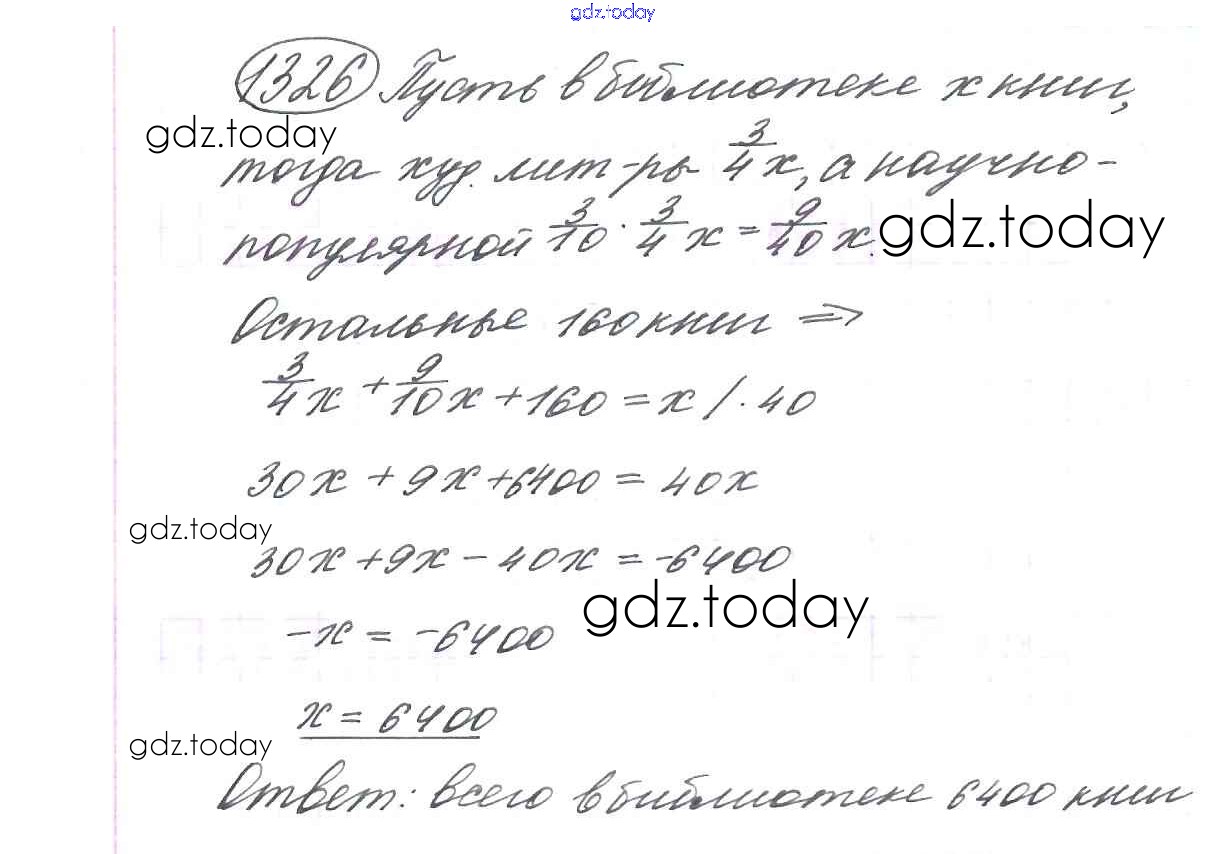 gdz.today
1326 Пусть в библиотеке x книг,
gdz.today
тогда худ. лит-ры 3/4 x, а научно-
популярной 3/10 · 3/4 x = 9/40 x. gdz.today
Остальные 160 книг ⇒
3/4 x + 9/10 x + 160 = x / · 40
30x + 9x + 6400 = 40x
gdz.today
30x + 9x - 40x = -6400
gdz.today
-x = -6400
x = 6400
gdz.today
Ответ: всего в библиотеке 6400 книг